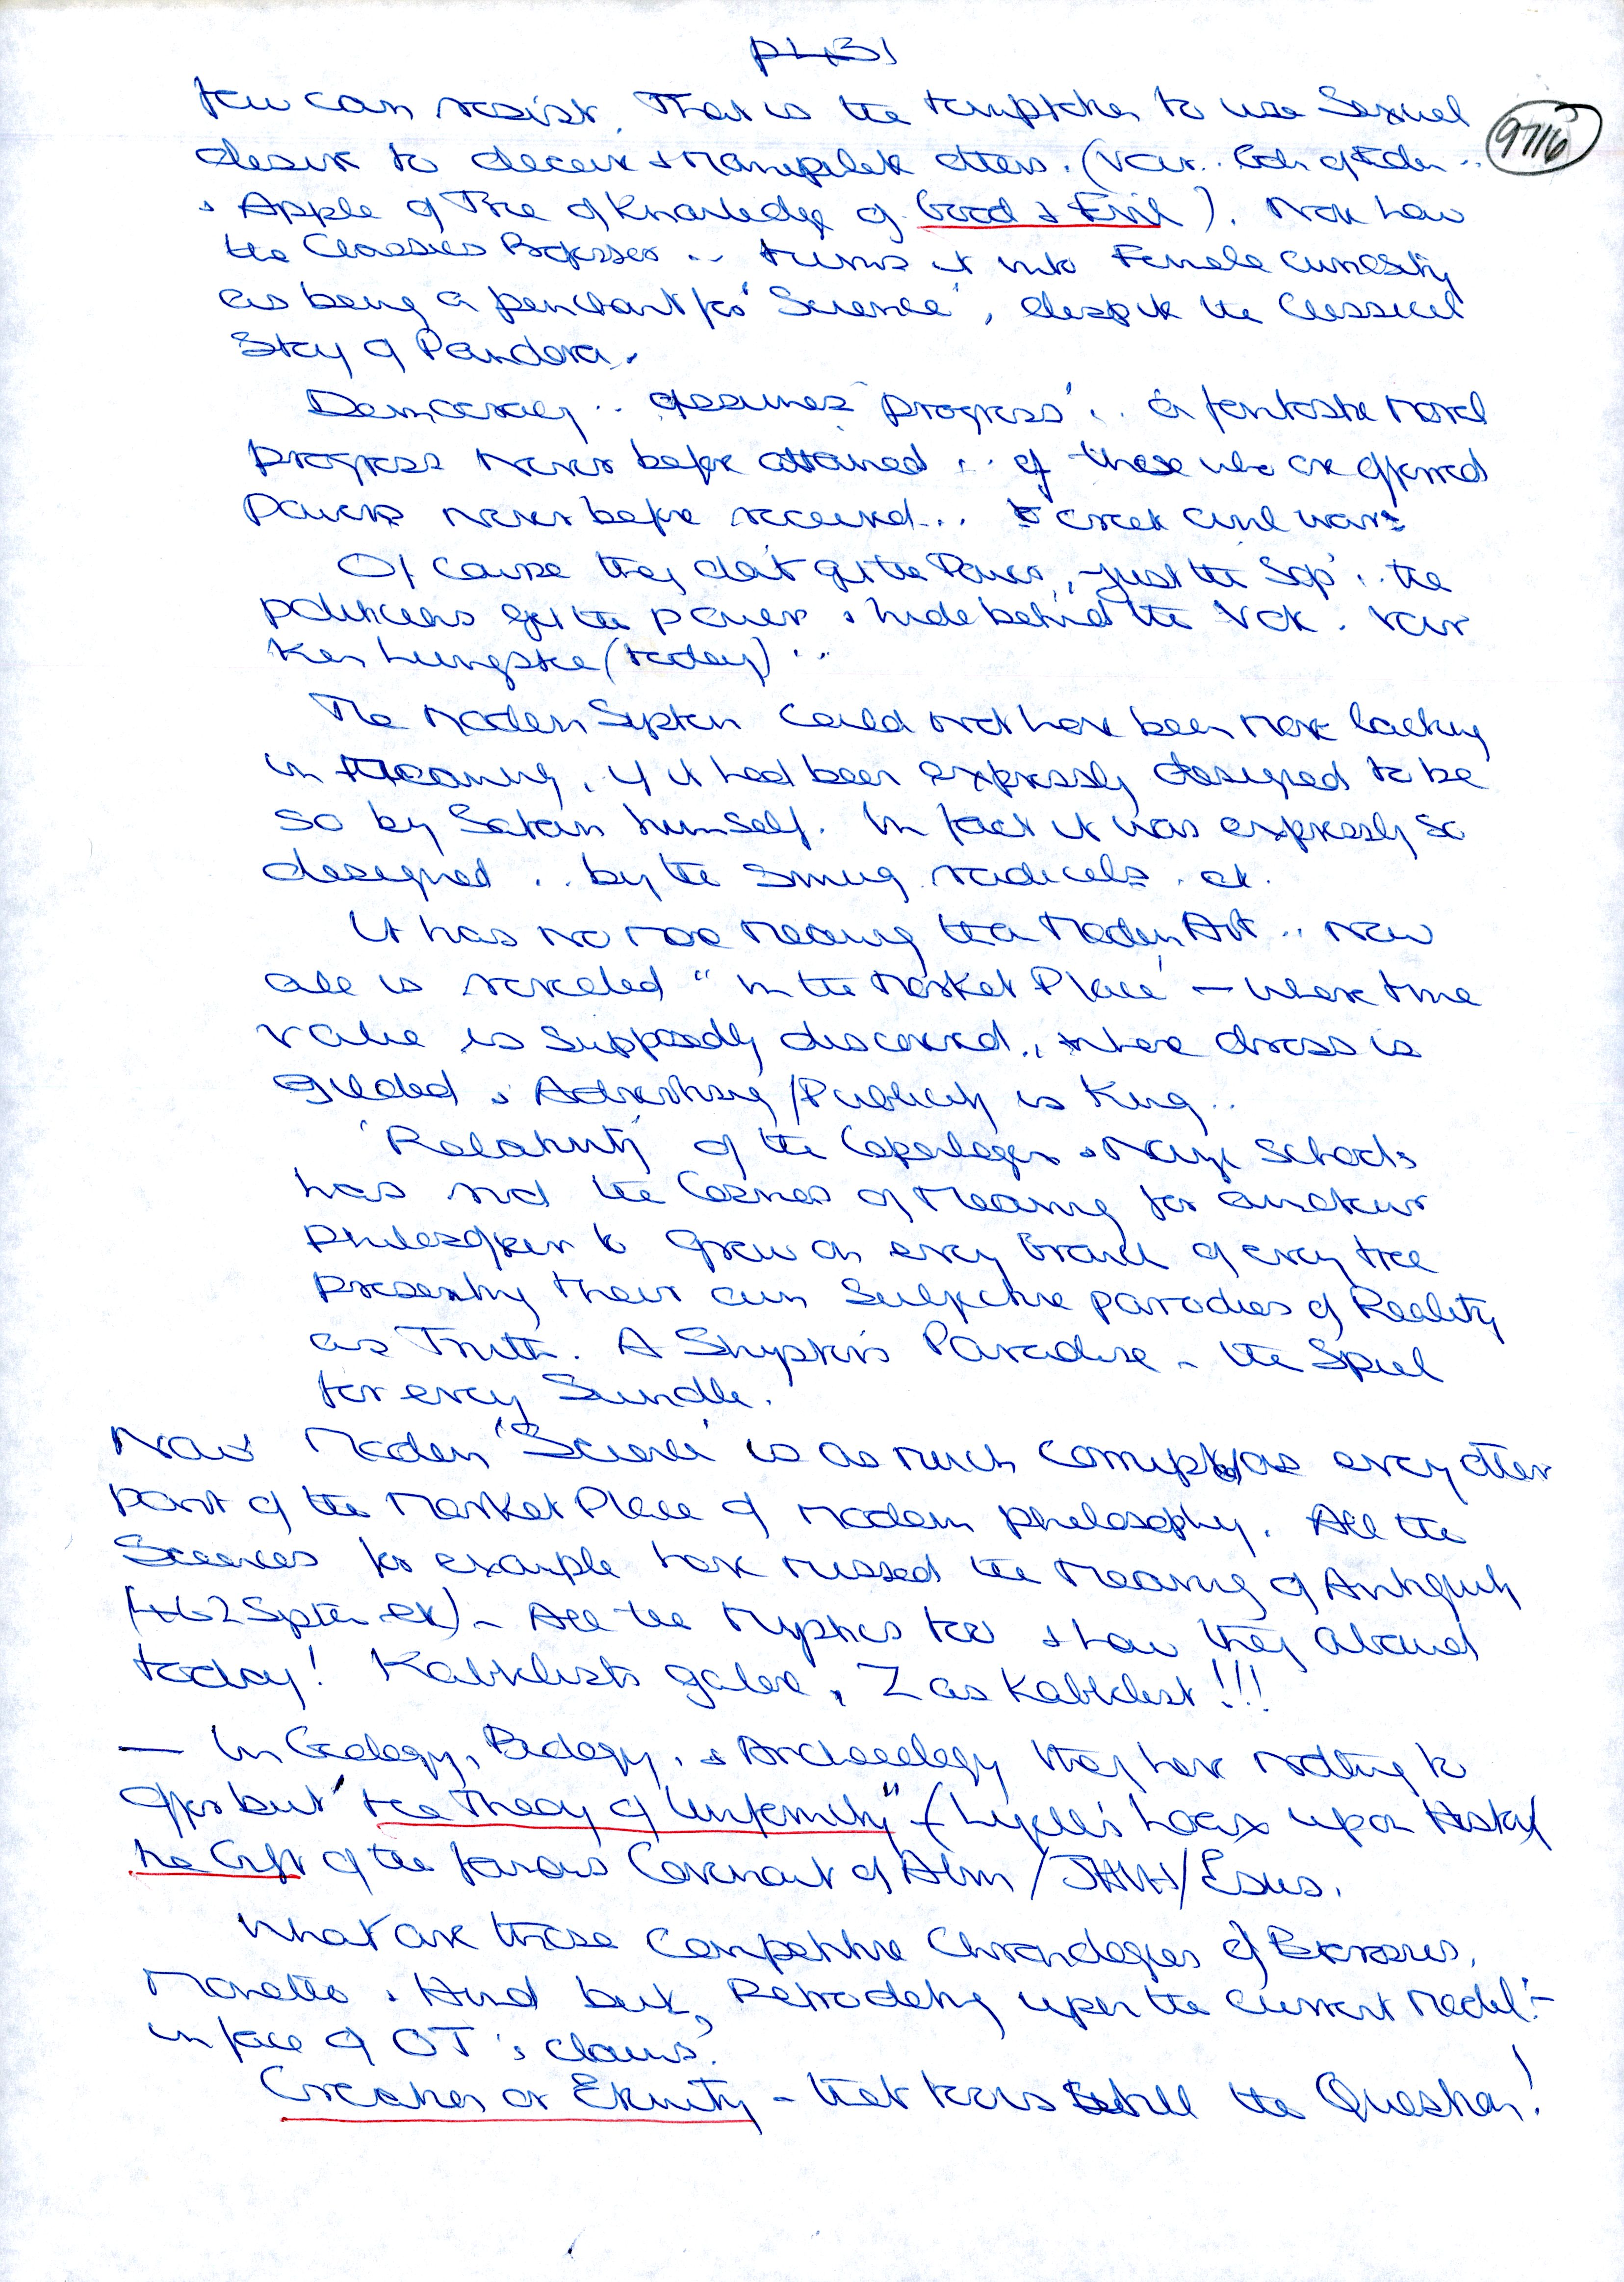 few can resist. That is the temptation to use Sexual
97/6
desire to deceive & manipulate others. (
& Apple of Tree of Knowledge of Good & Evil). Note how
the Classics Professor .. turns it into Female curiosity
as being a penchant for 'Science', despite the Classical
Story of Pandora.
Democracy .. assumes 'progress' .. a fantastic moral
progress never before attained .. of those who are offered
Powers never before received... to create civil wars
Of course they don't get the Power, - just the 'Sop' .. the
politicians get the power & hide behind the Vote.
Ken Livingstone (today) ..
The Modern System could not have been more lacking
in Meaning, if it had been expressly designed to be
so by Satan himself. In fact it was expressly so
designed .. by the smug radicals. etc.
It has no more Meaning than Modern Art .. Now
all is revealed "in the Market Place' — where true
value is supposedly discovered, where dross is
gilded & Advertising/Publicity is King..
'Relativity' of the Copenhagen & schools
has rid the Cosmos of Meaning for amateur
philosophers to grow on every branch of every tree
presenting their own Subjective parodies of Reality
as Truth. A Shyster's Paradise - the Spiel
for every Swindle.
Now Modern 'Science' is as much corrupted as every other
part of the Market Place of modern philosophy. All the
Sciences for example have missed the Meaning of Antiquity
- All the Mystics too & how they abound
today! Kabbalists galore, Z as Kabbalist!!!
— In Geology, Biology, & Archaeology they have nothing to
offer but "the Theory of Uniformity" - (Lyell's hoax upon History
the Gift of the famous Covenant of /JHVH/Esus.
What are those Competitive Chronologies of Berossus,
Manetho & but, Retrodating upon the current model! -
in face of OT's claims?
Creation or Eternity - that was still the Question!